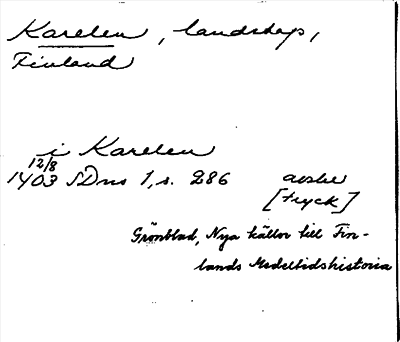 Karelen, landskap,
Finland
i Karelen
12/8
1403 SDns 1, s. 286 avskr
[tryck]
Grönblad, Nya källor till Fin-
lands Medeltidshistoria